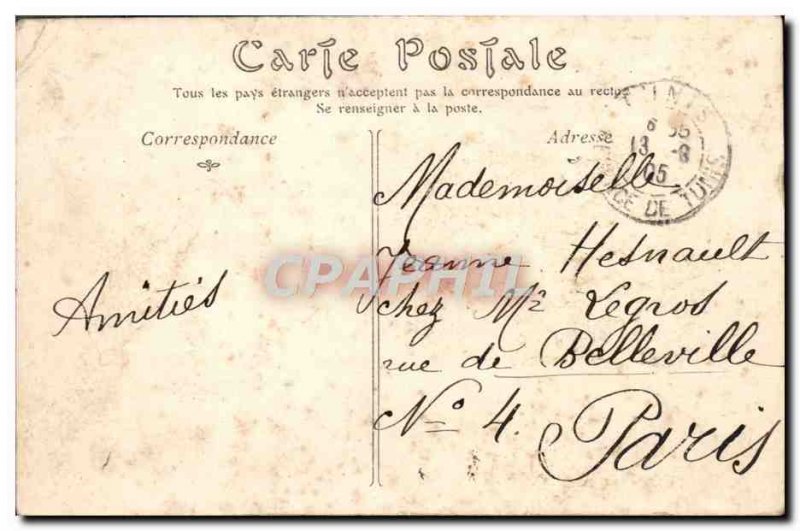 Carte Postale
Tous les pays étrangers n'acceptent pas la correspondance au recto
Se renseigner à la poste.
Correspondance
Adresse
13 -8
05
DE TUNIS
Mademoiselle
Jeanne Hesnault
chez Mr Legros
rue de Belleville
No 4.
Paris
Amitiés
CPAPHIL